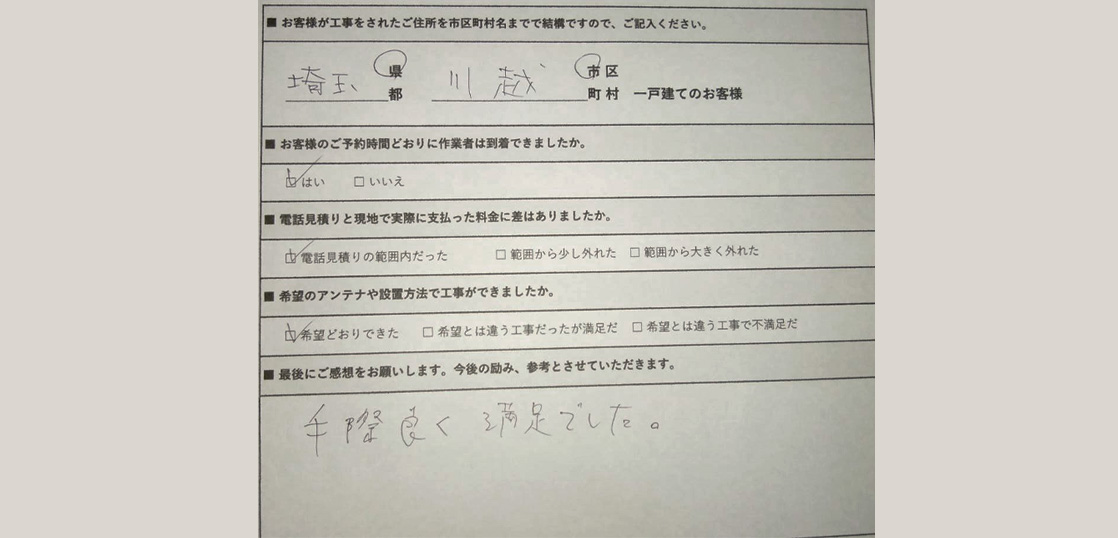 ■ お客様が工事をされたご住所を市区町村名までで結構ですので、ご記入ください。
埼玉 県 川越 市 区
都 町 村 一戸建てのお客様
■ お客様のご予約時間どおりに作業者は到着できましたか。
☑はい □いいえ
■ 電話見積りと現地で実際に支払った料金に差はありましたか。
☑電話見積りの範囲内だった □範囲から少し外れた □範囲から大きく外れた
■ 希望のアンテナや設置方法で工事ができましたか。
☑希望どおりできた □希望とは違う工事だったが満足だ □希望とは違う工事で不満足だ
■ 最後にご感想をお願いします。今後の励み、参考とさせていただきます。
手際良く満足でした。